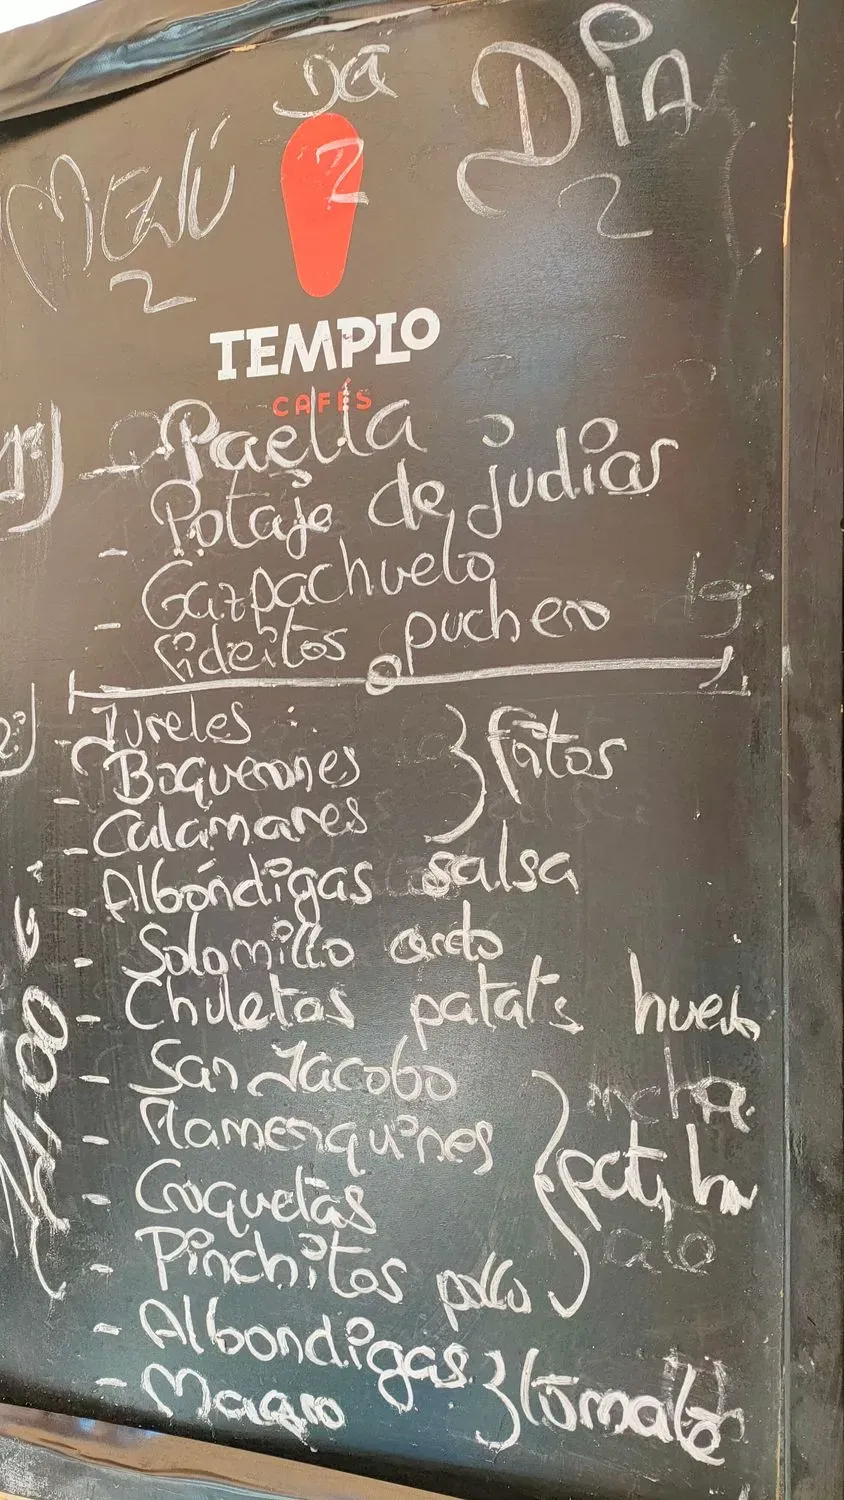 MENÚ DEL DÍA
TEMPLO
CAFÉS
1º) - Paella
- Potaje de judias
- Gazpachuelo
fideitos puchero
2º) - Jureles
- Boquerones } fritos
- Calamares
- Albóndigas salsa
- Solomillo cerdo
- Chuletas patats huevo
- San Jacobo
- Flamenquines } pat,
- Croquetas
- Pinchitos pollo
- Albondigas } tomate
- Magro